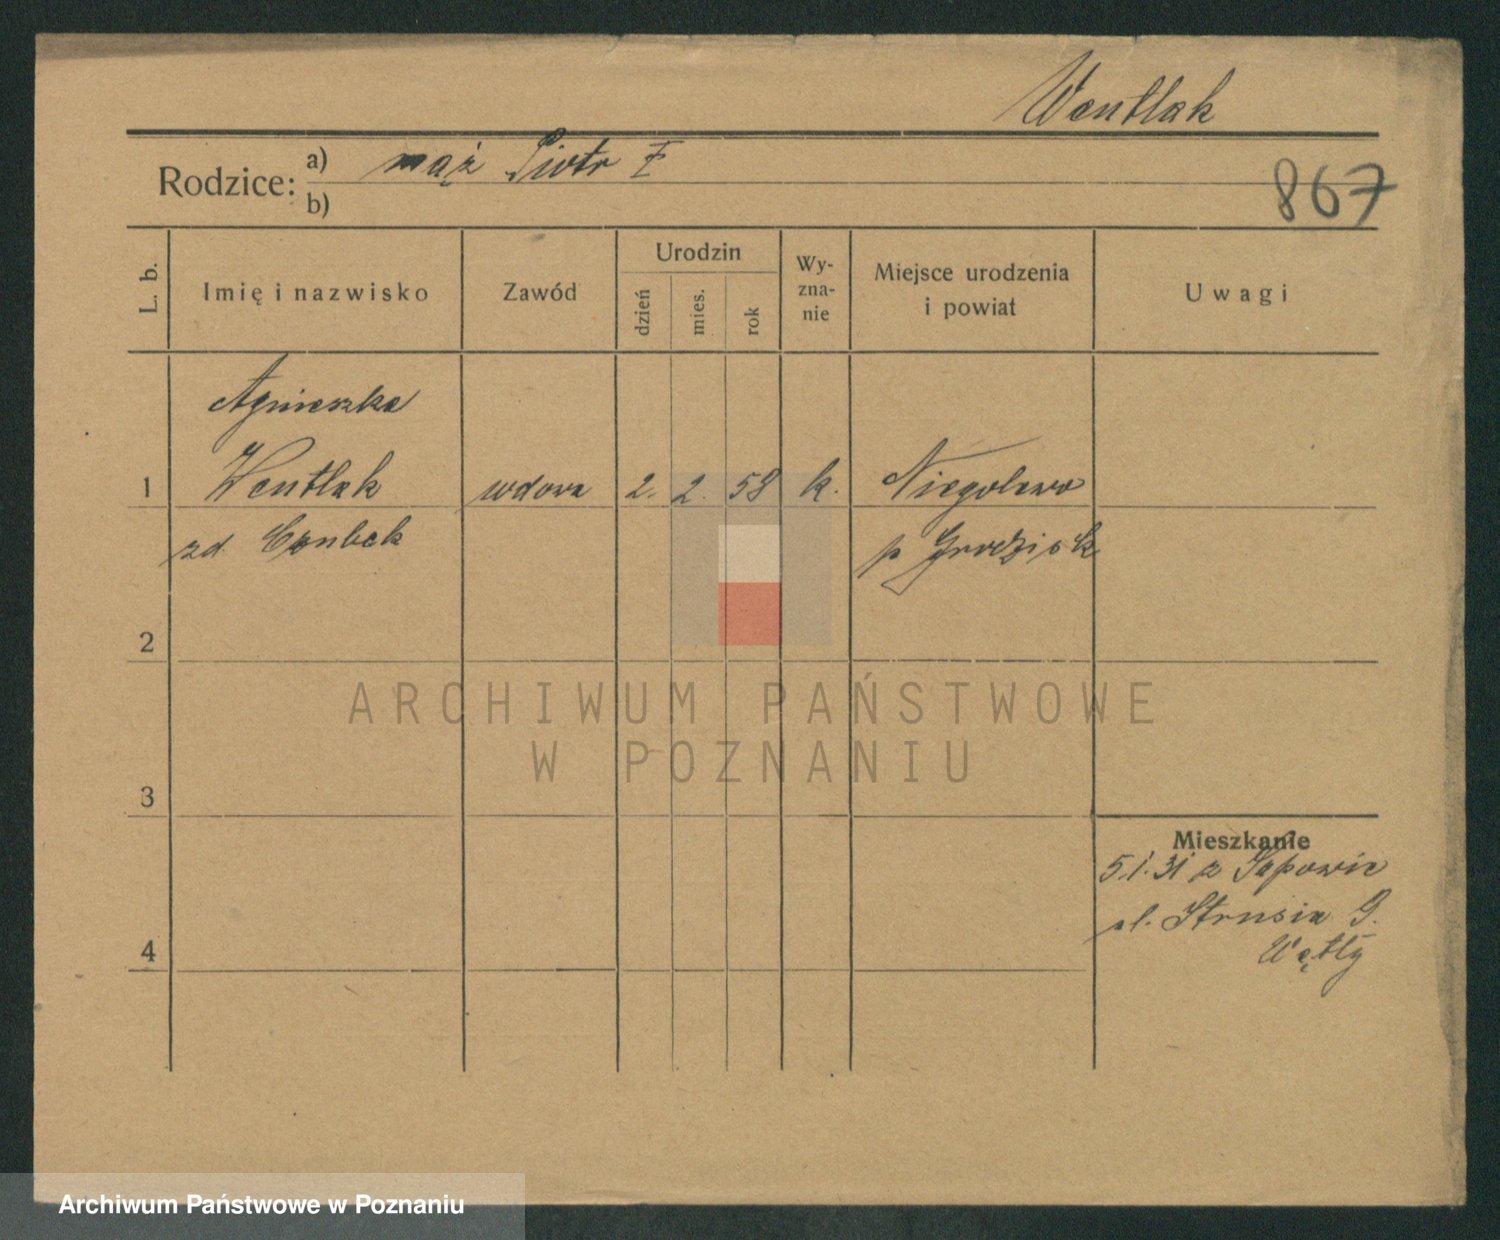 Wentlak
Rodzice: a) mąż Piotr
b)
867
L. b.
Imię i nazwisko
Zawód
Urodzin
dzień
mies.
rok
Wy-
zna-
nie
Miejsce urodzenia
i powiat
Uwagi
Agnieszka
1 Wentlak wdowa 2. 2. 58 k. Niegolewo
zd. p Grodzisk
2
3
4
Mieszkanie
5.1.31 z Sapowic
pl. Strusia 9.
Wętły
ARCHIWUM PAŃSTWOWE
W POZNANIU
Archiwum Państwowe w Poznaniu